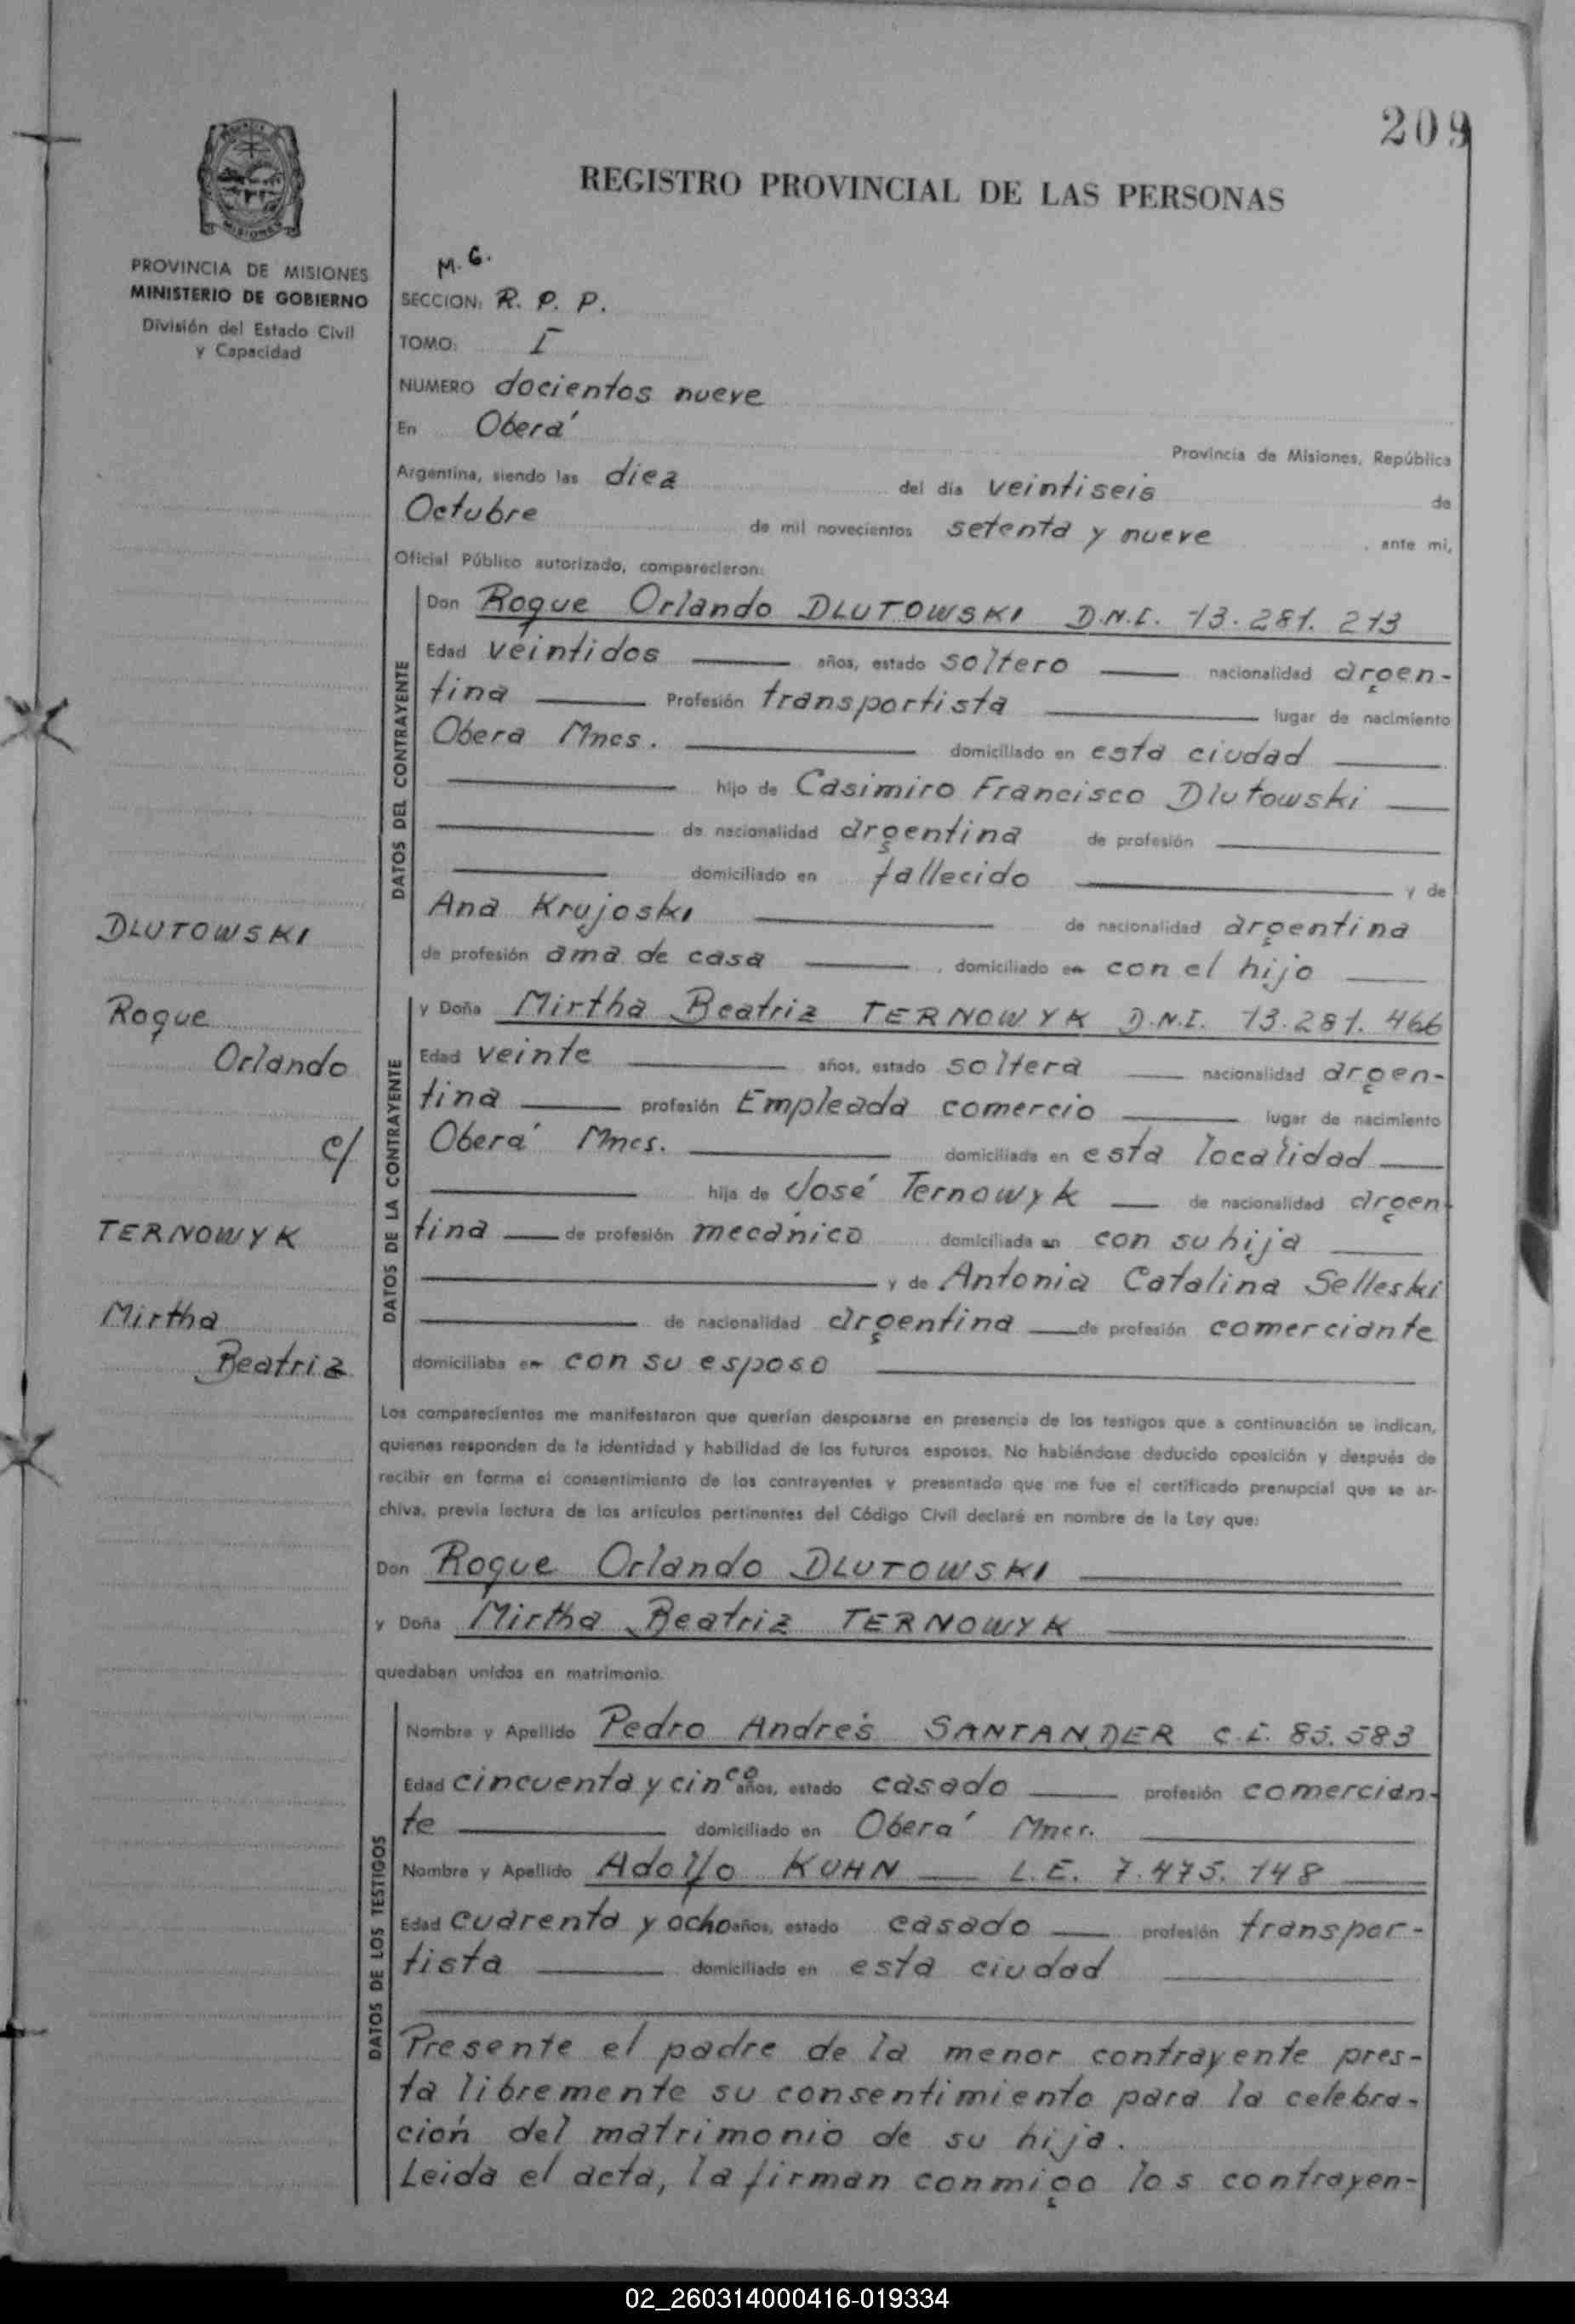 209
REGISTRO PROVINCIAL DE LAS PERSONAS
MISIONES
PROVINCIA DE MISIONES
MINISTERIO DE GOBIERNO
División del Estado Civil
y Capacidad
M. G.
SECCION: R. P. P.
TOMO: I
NUMERO docientos nueve
En Oberá
Provincia de Misiones, República
Argentina, siendo las diez del día veintiseis de
Octubre de mil novecientos setenta y nueve, ante mi,
Oficial Público autorizado, comparecieron:
DATOS DEL CONTRAYENTE
Don Roque Orlando DLUTOWSKI D.N.I. 13.281.213
Edad veintidos años, estado soltero nacionalidad argen-
tina Profesión transportista lugar de nacimiento
Obera Mnes. domiciliado en esta ciudad
hijo de Casimiro Francisco Dlutowski
de nacionalidad argentina de profesión
domiciliado en fallecido y de
Ana Krujoski de nacionalidad argentina
de profesión ama de casa, domiciliado en con el hijo
DATOS DE LA CONTRAYENTE
y Doña Mirtha Beatriz TERNOWYK D.N.I. 13.281.466
Edad veinte años, estado soltera nacionalidad argen-
tina profesión Empleada comercio lugar de nacimiento
Oberá Mnes. domiciliada en esta localidad
hija de José Ternowyk de nacionalidad argen-
tina de profesión mecánico domiciliada en con su hija
y de Antonia Catalina Selleski
de nacionalidad argentina de profesión comerciante
domiciliaba en con su esposo
DLUTOWSKI
Roque
Orlando
c/
TERNOWYK
Mirtha
Beatriz
Los comparecientes me manifestaron que querían desposarse en presencia de los testigos que a continuación se indican,
quienes responden de la identidad y habilidad de los futuros esposos. No habiéndose deducido oposición y después de
recibir en forma el consentimiento de los contrayentes y presentado que me fue el certificado prenupcial que se ar-
chiva, previa lectura de los artículos pertinentes del Código Civil declaré en nombre de la Ley que:
Don Roque Orlando DLUTOWSKI
y Doña Mirtha Beatriz TERNOWYK
quedaban unidos en matrimonio.
DATOS DE LOS TESTIGOS
Nombre y Apellido Pedro Andrés SANTANDER C.I. 85.583
Edad cincuenta y cinco años, estado casado profesión comercian-
te domiciliado en Oberá Mnes.
Nombre y Apellido Adolfo KUHN L.E. 7.475.148
Edad cuarenta y ocho años, estado casado profesión transpor-
tista domiciliado en esta ciudad
Presente el padre de la menor contrayente pres-
ta libremente su consentimiento para la celebra-
ción del matrimonio de su hija.
Leida el acta, la firman conmigo los contrayen-
02_260314000416-019334